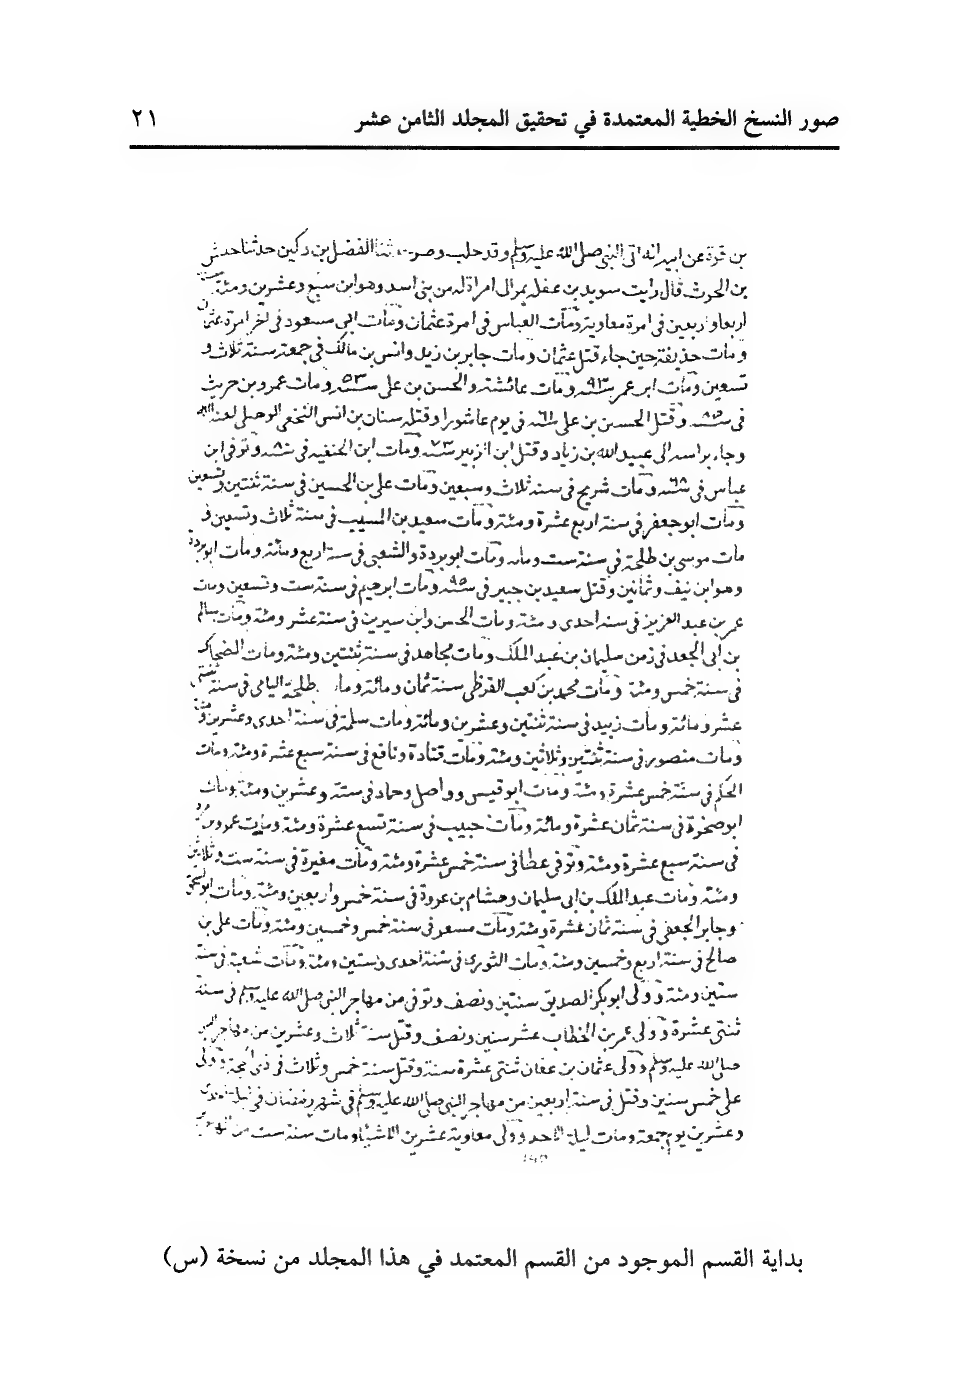 صور النسخ الخطية المعتمدة في تحقيق المجلد الثامن عشر ٢١
بن قرة عن ابيه انه اتى النبي صلى الله عليه وسلم وقد حلب وصر ثنا الفضل بن دكين حدثنا حنش
بن الحرث قال رايت سويد بن غفلة يمر الى امراة له من بني اسد وهو ابن سبع وعشرين ومئة
اربعا واربعين في امرة معاوية ومات العباس في امرة عثمان ومات ابي مسعود في اخر امرة عثمان
ومات حذيفة حين جاء قتل عثمان ومات جابر بن زيد وانس بن مالك في جمعة سنة ثلاث و
تسعين ومات ابن عمر سنة ومات عائشة والحسن بن علي سنة ومات عمرو بن حريث
في سنة وقتل الحسين بن علي سنة في يوم عاشورا وقتله سنان بن انس النخعي لعنه الله
وجاء براسه الى عبيد الله بن زياد وقتل ابن الزبير سنة ٧٣ ومات ابن الحنفية في سنة وتوفي ابن
عباس في سنة ٦٨ ومات شريح في سنة ثلاث وسبعين ومات علي بن الحسين في سنة ثنتين وتسعين
ومات ابو جعفر في سنة اربع عشرة ومئة ومات سعيد بن المسيب في سنة ثلاث وتسعين و
مات موسى بن طلحة في سنة ست ومات ابو بردة والشعبي في سنة اربع ومئة ومات ابو بردة
وهو ابن نيف وثمانين وقتل سعيد بن جبير في سنة ٩٥ ومات ابرهيم في سنة ست وتسعين ومات
عمر بن عبد العزيز في سنة احدى ومئة ومات الحسن وابن سيرين في سنة عشر ومئة ومات سالم
بن ابي الجعد في زمن سليمان بن عبد الملك ومات مجاهد في سنة ثنتين ومئة ومات الضحاك
في سنة خمس ومئة ومات محمد بن كعب القرظي سنة ثمان ومائة طلحة اليامي في سنة ثنتي
عشر ومائة ومات زبيد في سنة ثنتين وعشرين ومائة ومات سلمة في سنة احدى وعشرين ومئة
ومات منصور في سنة ثنتين وثلاثين ومئة ومات قتادة ونافع في سنة سبع عشرة ومئة ومات
الحكم في سنة خمس عشرة ومئة ومات ابو قيس وواصل وحماد في سنة وعشرين ومئة ومات
ابو صخرة في سنة ثمان عشرة ومائة ومات حبيب في سنة تسع عشرة ومئة ومات عمرو بن مرة
في سنة سبع عشرة ومئة وتوفي عطا في سنة خمس عشرة ومئة ومات مغيرة في سنة ست وثلاثين
ومئة ومات عبد الملك بن ابي سليمان وهشام بن عروة في سنة خمس واربعين ومئة ومات ابو اسحق
وجابر الجعفي في سنة ثمان عشرة ومئة ومات مسعر في سنة خمس وخمسين ومئة ومات علي بن
صالح في سنة اربع وخمسين ومئة ومات الثوري في سنة احدى وستين ومئة ومات شعبة في سنة
ستين ومئة وولى ابو بكر الصديق سنتين ونصف وتوفي من مهاجر النبي صلى الله عليه وسلم في سنة
ثنتي عشرة وولى عمر بن الخطاب عشر سنين ونصف وقتل سنة ثلاث وعشرين من مهاجر النبي
صلى الله عليه وسلم وولى عثمان بن عفان ثنتي عشرة سنة وقتل سنة خمس وثلاث في ذي الحجة وولى
علي خمس سنين وقتل في سنة اربعين من مهاجر النبي صلى الله عليه وسلم في شهر رمضان في ليلة احدى
وعشرين يوم جمعة ومات ليلة الاحد وولى معاوية عشرين الا شيئا ومات سنة ست من
بداية القسم الموجود من القسم المعتمد في هذا المجلد من نسخة (س)